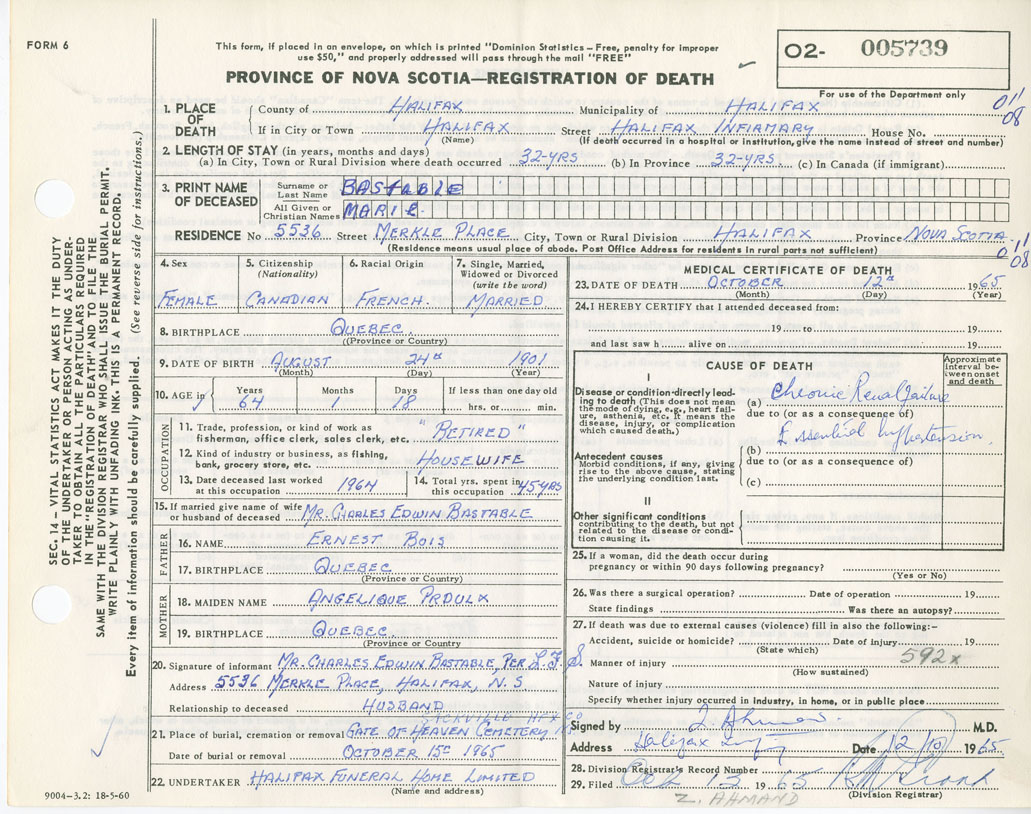 FORM 6
This form, if placed in an envelope, on which is printed "Dominion Statistics – Free, penalty for improper
use $50," and properly addressed will pass through the mail "FREE"
PROVINCE OF NOVA SCOTIA—REGISTRATION OF DEATH
O2- 005739
For use of the Department only
011
08
1. PLACE OF DEATH
County of HALIFAX Municipality of HALIFAX
If in City or Town HALIFAX Street HALIFAX INFIRMARY House No.
(Name) (If death occurred in a hospital or institution, give the name instead of street and number)
2. LENGTH OF STAY (in years, months and days)
(a) In City, Town or Rural Division where death occurred 32-YRS (b) In Province 32-YRS (c) In Canada (if immigrant)
3. PRINT NAME OF DECEASED
Surname or Last Name BASTABLE
All Given or Christian Names MARIE
RESIDENCE No 5536 Street MERKLE PLACE City, Town or Rural Division HALIFAX Province NOVA SCOTIA
(Residence means usual place of abode. Post Office Address for residents in rural parts not sufficient)
011
08
4. Sex FEMALE
5. Citizenship (Nationality) CANADIAN
6. Racial Origin FRENCH.
7. Single, Married, Widowed or Divorced (write the word) MARRIED
8. BIRTHPLACE QUEBEC
((Province or Country)
9. DATE OF BIRTH AUGUST 24th 1901
(Month) (Day) (Year)
10. AGE in Years 64 Months 1 Days 18 If less than one day old hrs. or min.
OCCUPATION
11. Trade, profession, or kind of work as fisherman, office clerk, sales clerk, etc. "RETIRED"
12. Kind of industry or business, as fishing, bank, grocery store, etc. HOUSEWIFE
13. Date deceased last worked at this occupation 1964
14. Total yrs. spent in this occupation 45 YRS
15. If married give name of wife or husband of deceased MR. CHARLES EDWIN BASTABLE
FATHER
16. NAME ERNEST BOIS
17. BIRTHPLACE QUEBEC
(Province or Country)
MOTHER
18. MAIDEN NAME ANGELIQUE PROULX
19. BIRTHPLACE QUEBEC.
(Province or Country)
20. Signature of informant MR. CHARLES EDWIN BASTABLE, PER L.F.S.
Address 5536 MERKLE PLACE, HALIFAX, N.S
Relationship to deceased HUSBAND
SACKVILLE HFX CO
21. Place of burial, cremation or removal GATE OF HEAVEN CEMETERY
Date of burial or removal OCTOBER 15th 1965
22. UNDERTAKER HALIFAX FUNERAL HOME LIMITED
(Name and address)
9004–3.2: 18-5-60
MEDICAL CERTIFICATE OF DEATH
23. DATE OF DEATH OCTOBER 12th 1965
(Month) (Day) (Year)
24. I HEREBY CERTIFY that I attended deceased from:
19 to 19
and last saw h alive on 19
CAUSE OF DEATH
Approximate interval between onset and death
I
Disease or condition directly leading to death (This does not mean the mode of dying, e.g., heart failure, asthenia, etc. It means the disease, injury, or complication which caused death.)
(a) Chronic Renal failure
due to (or as a consequence of)
Essential hypertension
Antecedent causes
Morbid conditions, if any, giving rise to the above cause, stating the underlying condition last.
(b)
due to (or as a consequence of)
(c)
II
Other significant conditions
contributing to the death, but not related to the disease or condition causing it.
25. If a woman, did the death occur during pregnancy or within 90 days following pregnancy?
(Yes or No)
26. Was there a surgical operation? Date of operation 19
State findings Was there an autopsy?
27. If death was due to external causes (violence) fill in also the following:–
Accident, suicide or homicide? Date of injury 19
(State which)
592x
Manner of injury
(How sustained)
Nature of injury
Specify whether injury occurred in industry, in home, or in public place
Signed by Z. Ahmand M.D.
Address Halifax Date 12/10 1965
28. Division Registrar's Record Number
29. Filed Oct 13 1965
(Division Registrar)
Z. AHMAND
SEC. 14 – VITAL STATISTICS ACT MAKES IT THE DUTY
OF THE UNDERTAKER OR PERSON ACTING AS UNDER-
TAKER TO OBTAIN ALL THE PARTICULARS REQUIRED
IN THE "REGISTRATION OF DEATH" AND TO FILE THE
SAME WITH THE DIVISION REGISTRAR WHO SHALL ISSUE THE BURIAL PERMIT.
WRITE PLAINLY WITH UNFADING INK. THIS IS A PERMANENT RECORD.
Every item of information should be carefully supplied. (See reverse side for instructions.)